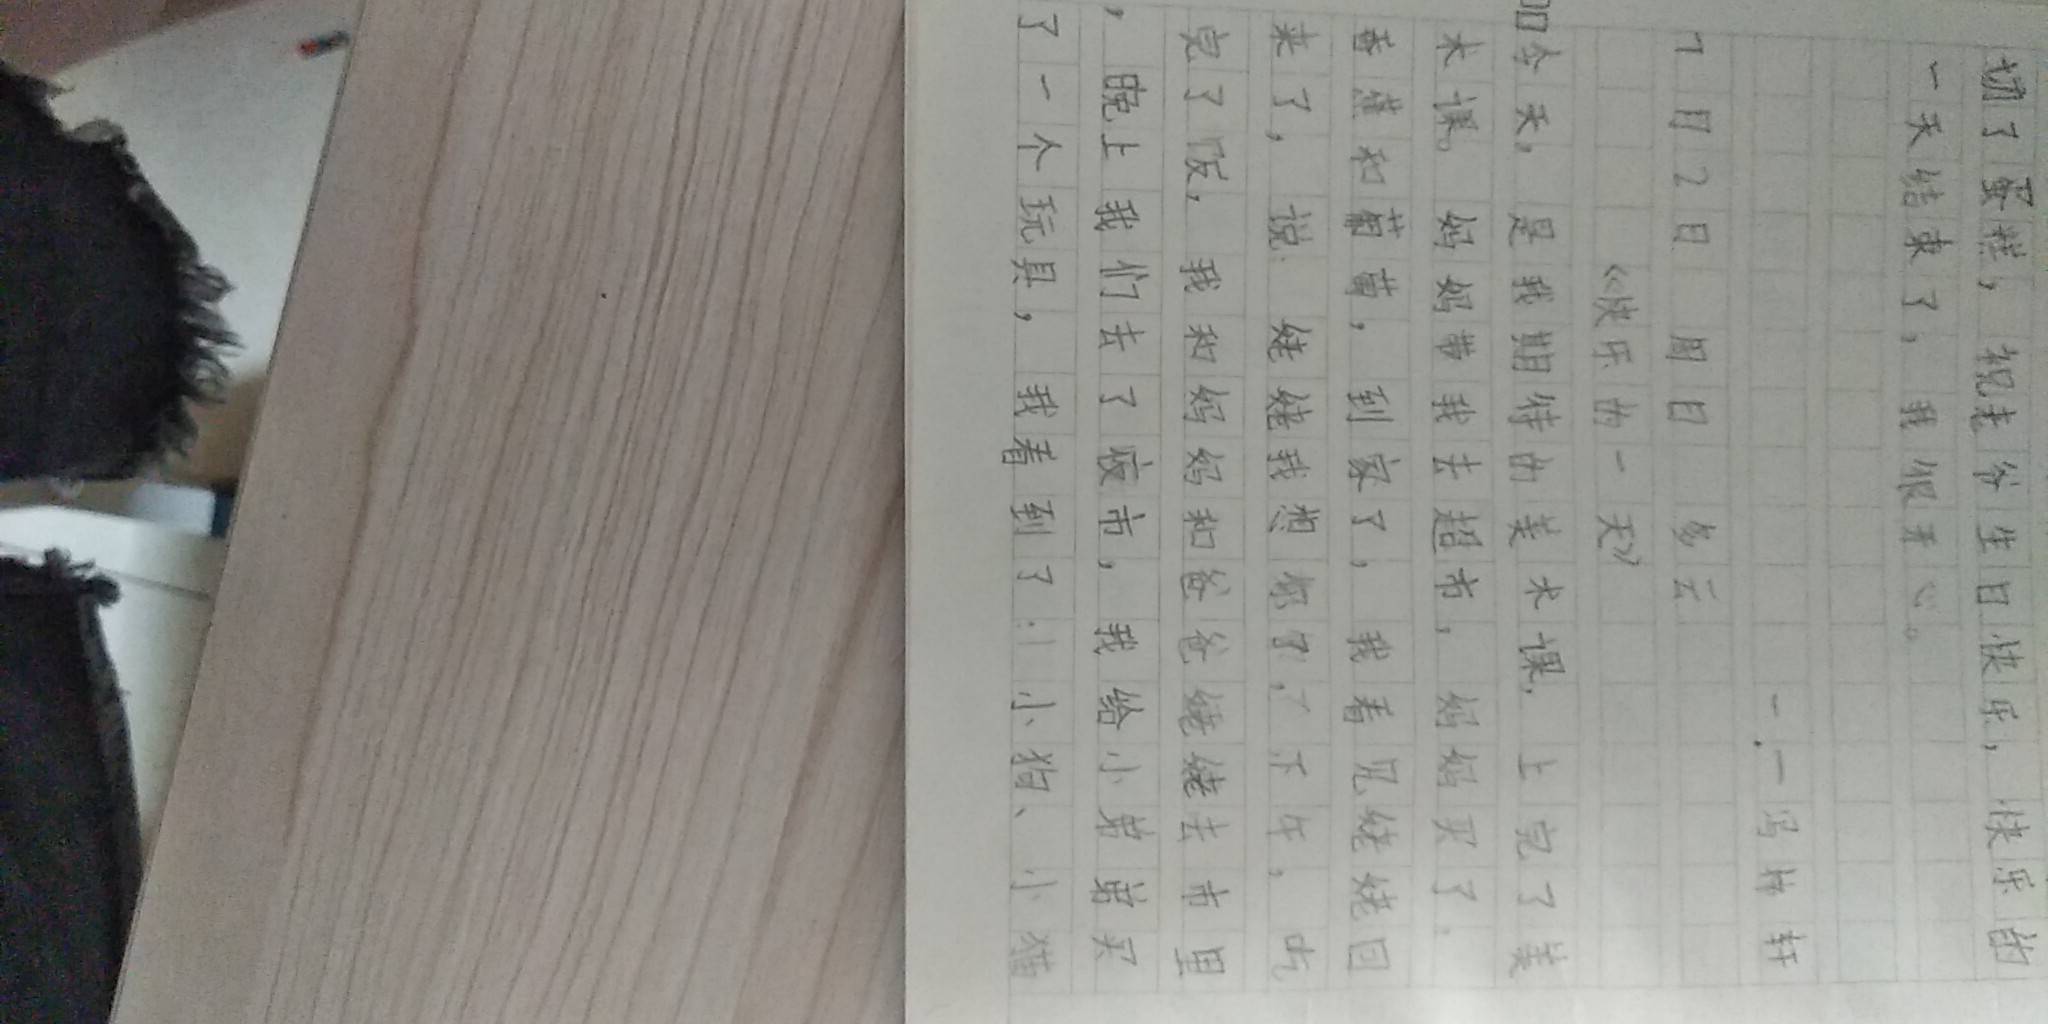 切了蛋糕，祝老爷生日快乐，快乐的
一天结束了，我很开心。
一.一冯梓轩
7月2日 周日 多云
《快乐的一天》
今天，是我期待的美术课，上完了美
术课。妈妈带我去超市，妈妈买了.
香蕉和葡萄，到家了，我看见姥姥回
来了，说 姥姥我想你了，了下午。吃
完了饭，我和妈妈和爸爸姥姥去市里
，晚上我们去了夜市，我给小弟弟买
了一个玩具，我看到了：小狗、小猫